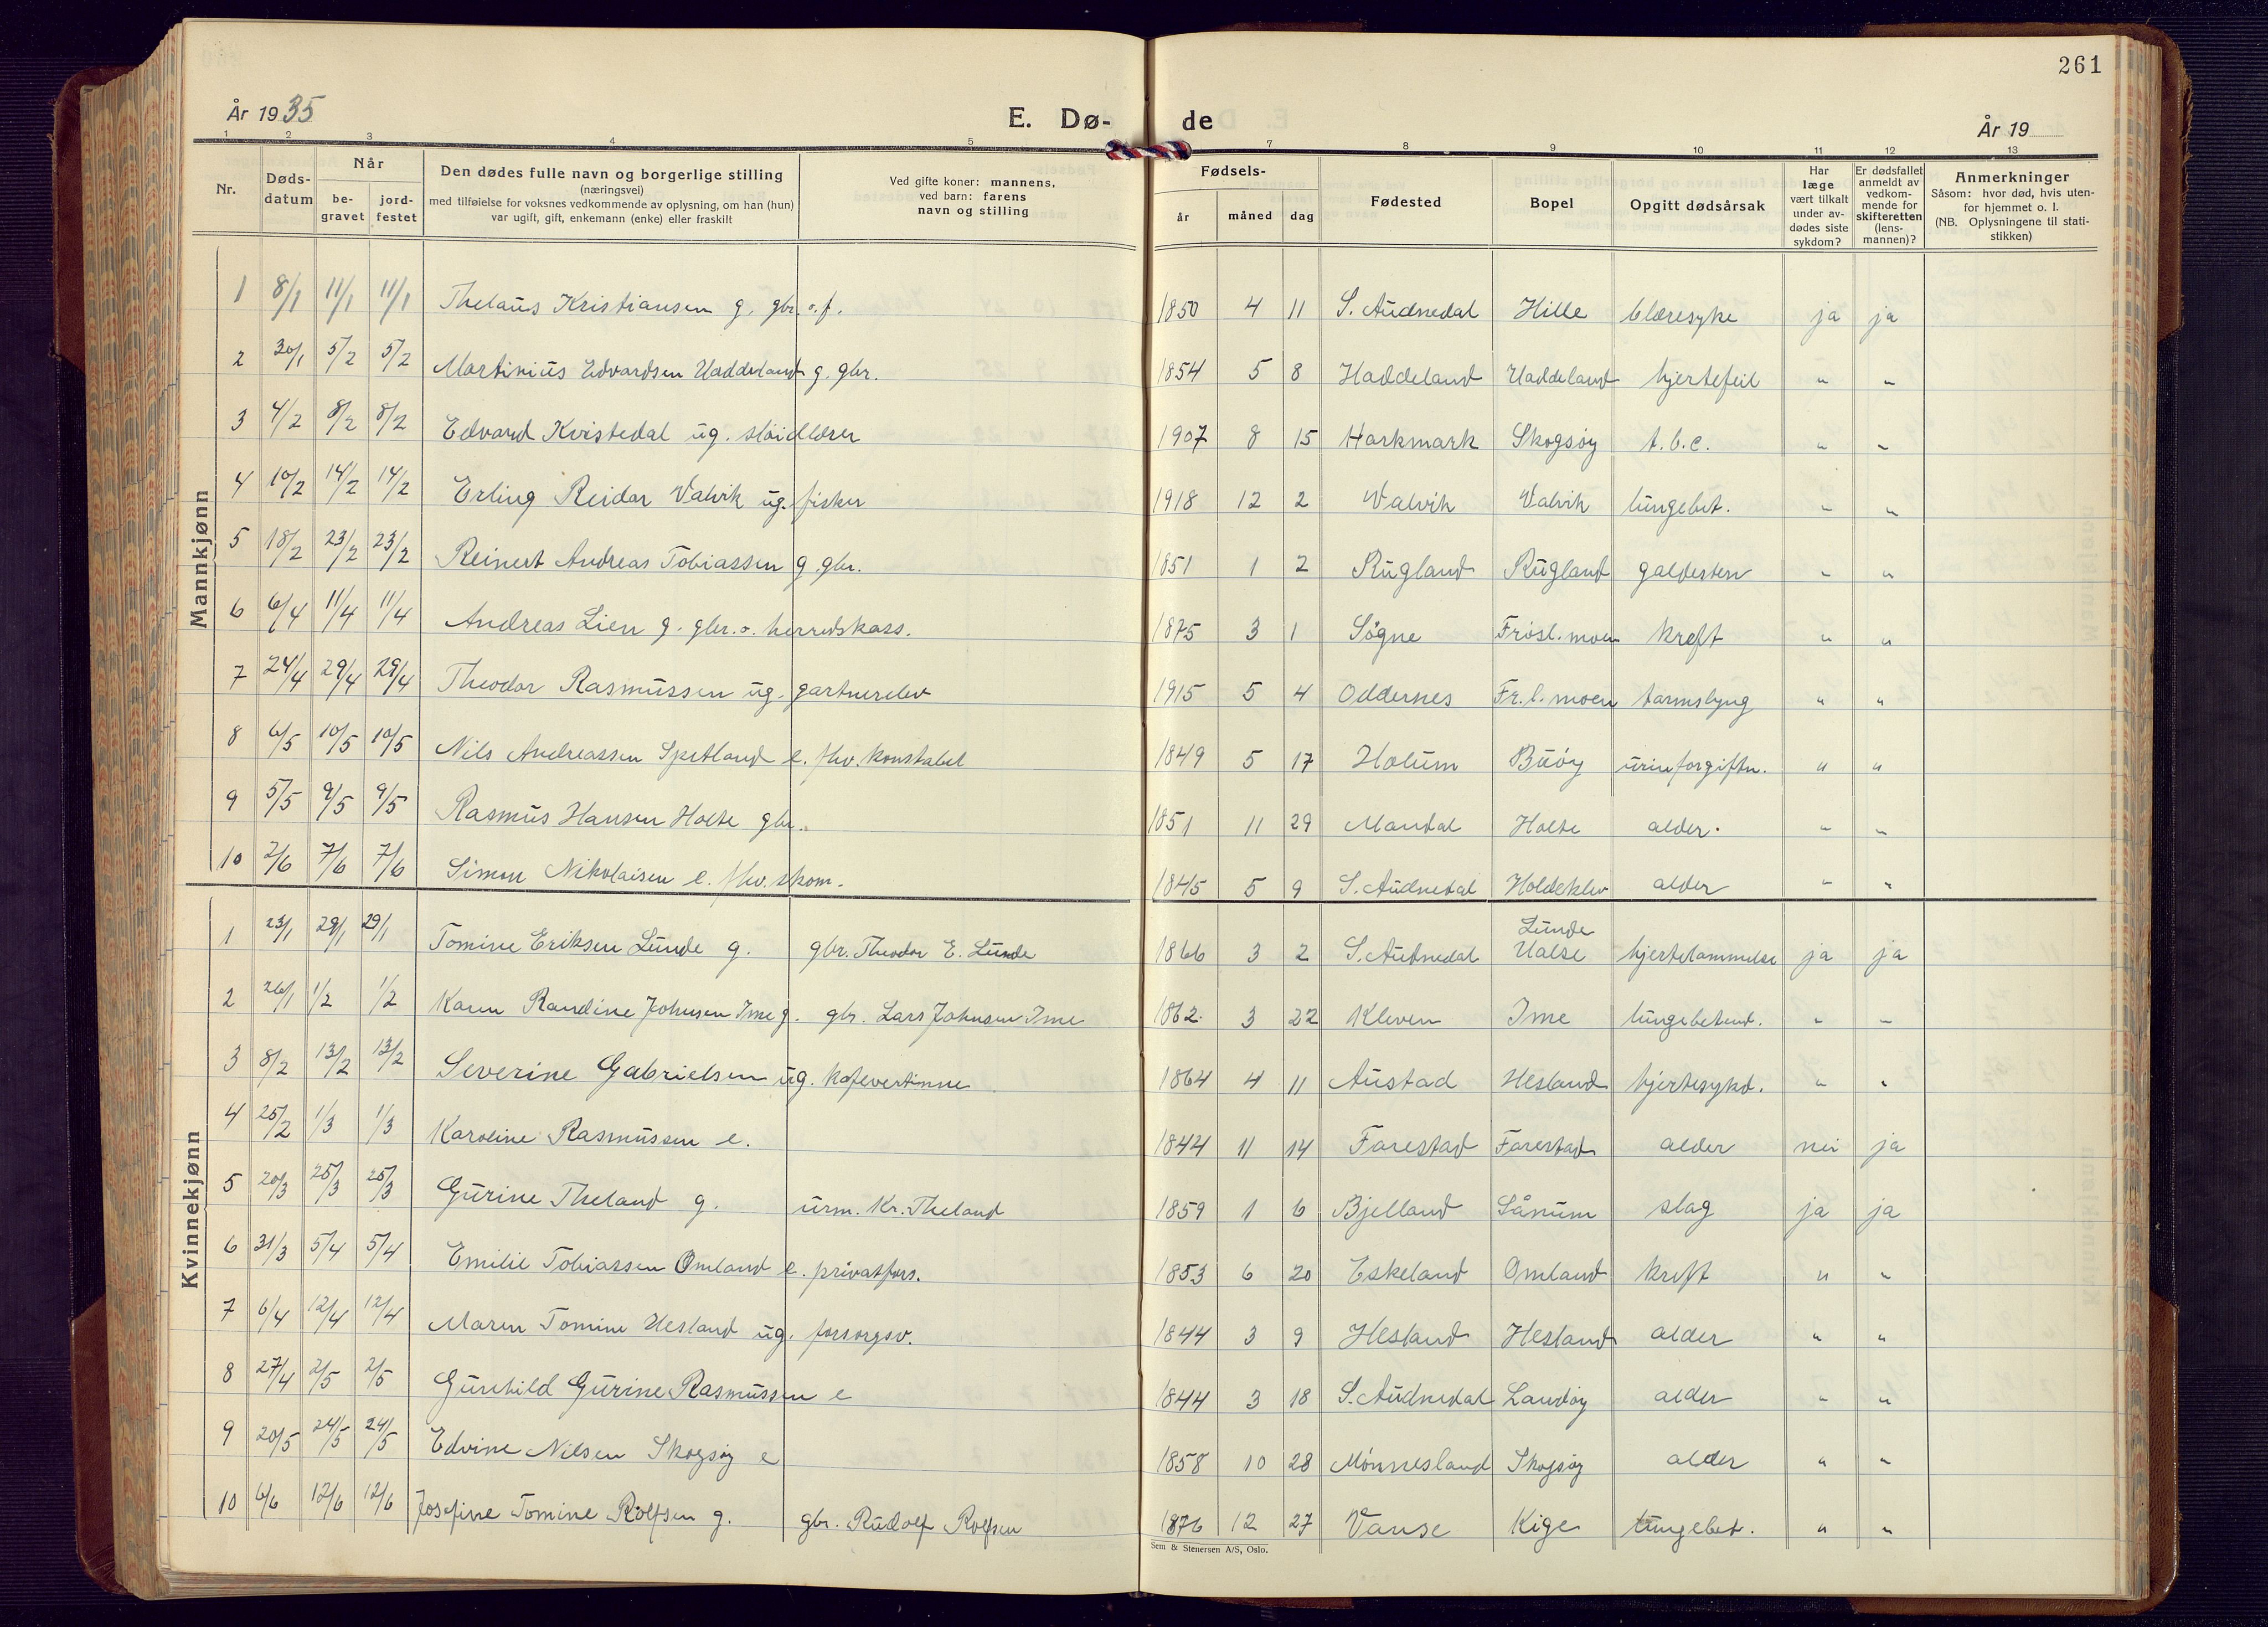 261
År 1935
E. Dø- de
År 19
1 2 3 4 5 7 8 9 10 11 12 13
Nr.
Døds-
datum
Når
be-
gravet
jord-
festet
Den dødes fulle navn og borgerlige stilling
(næringsvei)
med tilføielse for voksnes vedkommende av oplysning, om han (hun)
var ugift, gift, enkemann (enke) eller fraskilt
Ved gifte koner: mannens,
ved barn: farens
navn og stilling
Fødsels-
år måned dag
Fødested
Bopel
Opgitt dødsårsak
Har
læge
vært tilkalt
under av-
dødes siste
sykdom?
Er dødsfallet
anmeldt av
vedkom-
mende for
skifteretten
(lens-
mannen)?
Anmerkninger
Såsom: hvor død, hvis uten-
for hjemmet o. l.
(NB. Oplysningene til stati-
stikken)
Mannkjønn
1 8/1 11/1 11/1 Thelaus Kristiansen g. gbr. o. f. 1850 4 11 S. Audnedal Hille blæresyke ja ja
2 30/1 5/2 5/2 Martinius Edvardsen Haddeland g. gbr. 1854 5 8 Haddeland Haddeland hjertefeil " "
3 4/2 8/2 8/2 Edvard Kvistedal ug. sløidlærer 1907 8 15 Harkmark Skogsøy t.b.c. " "
4 10/2 14/2 14/2 Erling Reidar Valvik ug. fisker 1918 12 2 Valvik Valvik lungebet. " "
5 18/2 23/2 23/2 Reinert Andreas Tobiassen g. gbr. 1851 1 2 Rugland Rugland galdesten " "
6 6/4 11/4 11/4 Andreas Lien g. gbr. o. herredskass. 1875 3 1 Søgne Frøsl. moen kreft " "
7 24/4 29/4 29/4 Theodor Rasmussen ug. gartnerelev 1915 5 4 Oddernes Fr. l. moen tarmslyng " "
8 6/5 10/5 10/5 Nils Andreassen Spetland e. fhv. konstabel 1849 5 17 Holum Buøy urinforgiftn. " "
9 5/5 9/5 9/5 Rasmus Hansen Holte gbr. 1851 11 29 Mandal Holte alder. " "
10 2/6 7/6 7/6 Simon Nikolaisen e. fhv. skom. 1845 5 9 S. Audnedal Holdeklev alder " "
Kvinnekjønn
1 23/1 29/1 29/1 Tomine Eriksen Lunde g. gbr. Theodor E. Lunde 1866 3 2 S. Audnedal Lunde Ualse hjertelammelse ja ja
2 26/1 1/2 1/2 Karen Randine Johnsen Ime g. gbr. Lars Johnsen Ime 1862 3 22 Kleven Ime lungebetend. " "
3 8/2 13/2 13/2 Severine Gabrielsen ug. kafevertinne 1864 4 11 Austad Hesland hjertesykd. " "
4 25/2 1/3 1/3 Karoline Rasmussen e. 1844 11 14 Farestad Farestad alder nei ja
5 20/3 25/3 25/3 Gurine Theland g. urm. Kr. Theland 1859 1 6 Bjelland Sånum slag ja ja
6 31/3 5/4 5/4 Emilie Tobiassen Omland e. privatfors. 1853 6 20 Eskeland Omland kreft " "
7 6/4 12/4 12/4 Maren Tomine Hesland ug. forsorgsv. 1844 3 9 Hesland Hesland alder " "
8 27/4 2/5 2/5 Gunhild Gurine Rasmussen e 1844 3 18 S. Audnedal Landøy alder " "
9 20/5 24/5 24/5 Edvine Nilsen Skogsøy e 1858 10 28 Mønnesland Skogsøy alder " "
10 6/6 12/6 12/6 Josefine Tomine Rolfsen g. gbr. Rudolf Rolfsen 1876 12 27 Vanse Kige lungebet. " "
Sem & Stenersen A/S, Oslo.